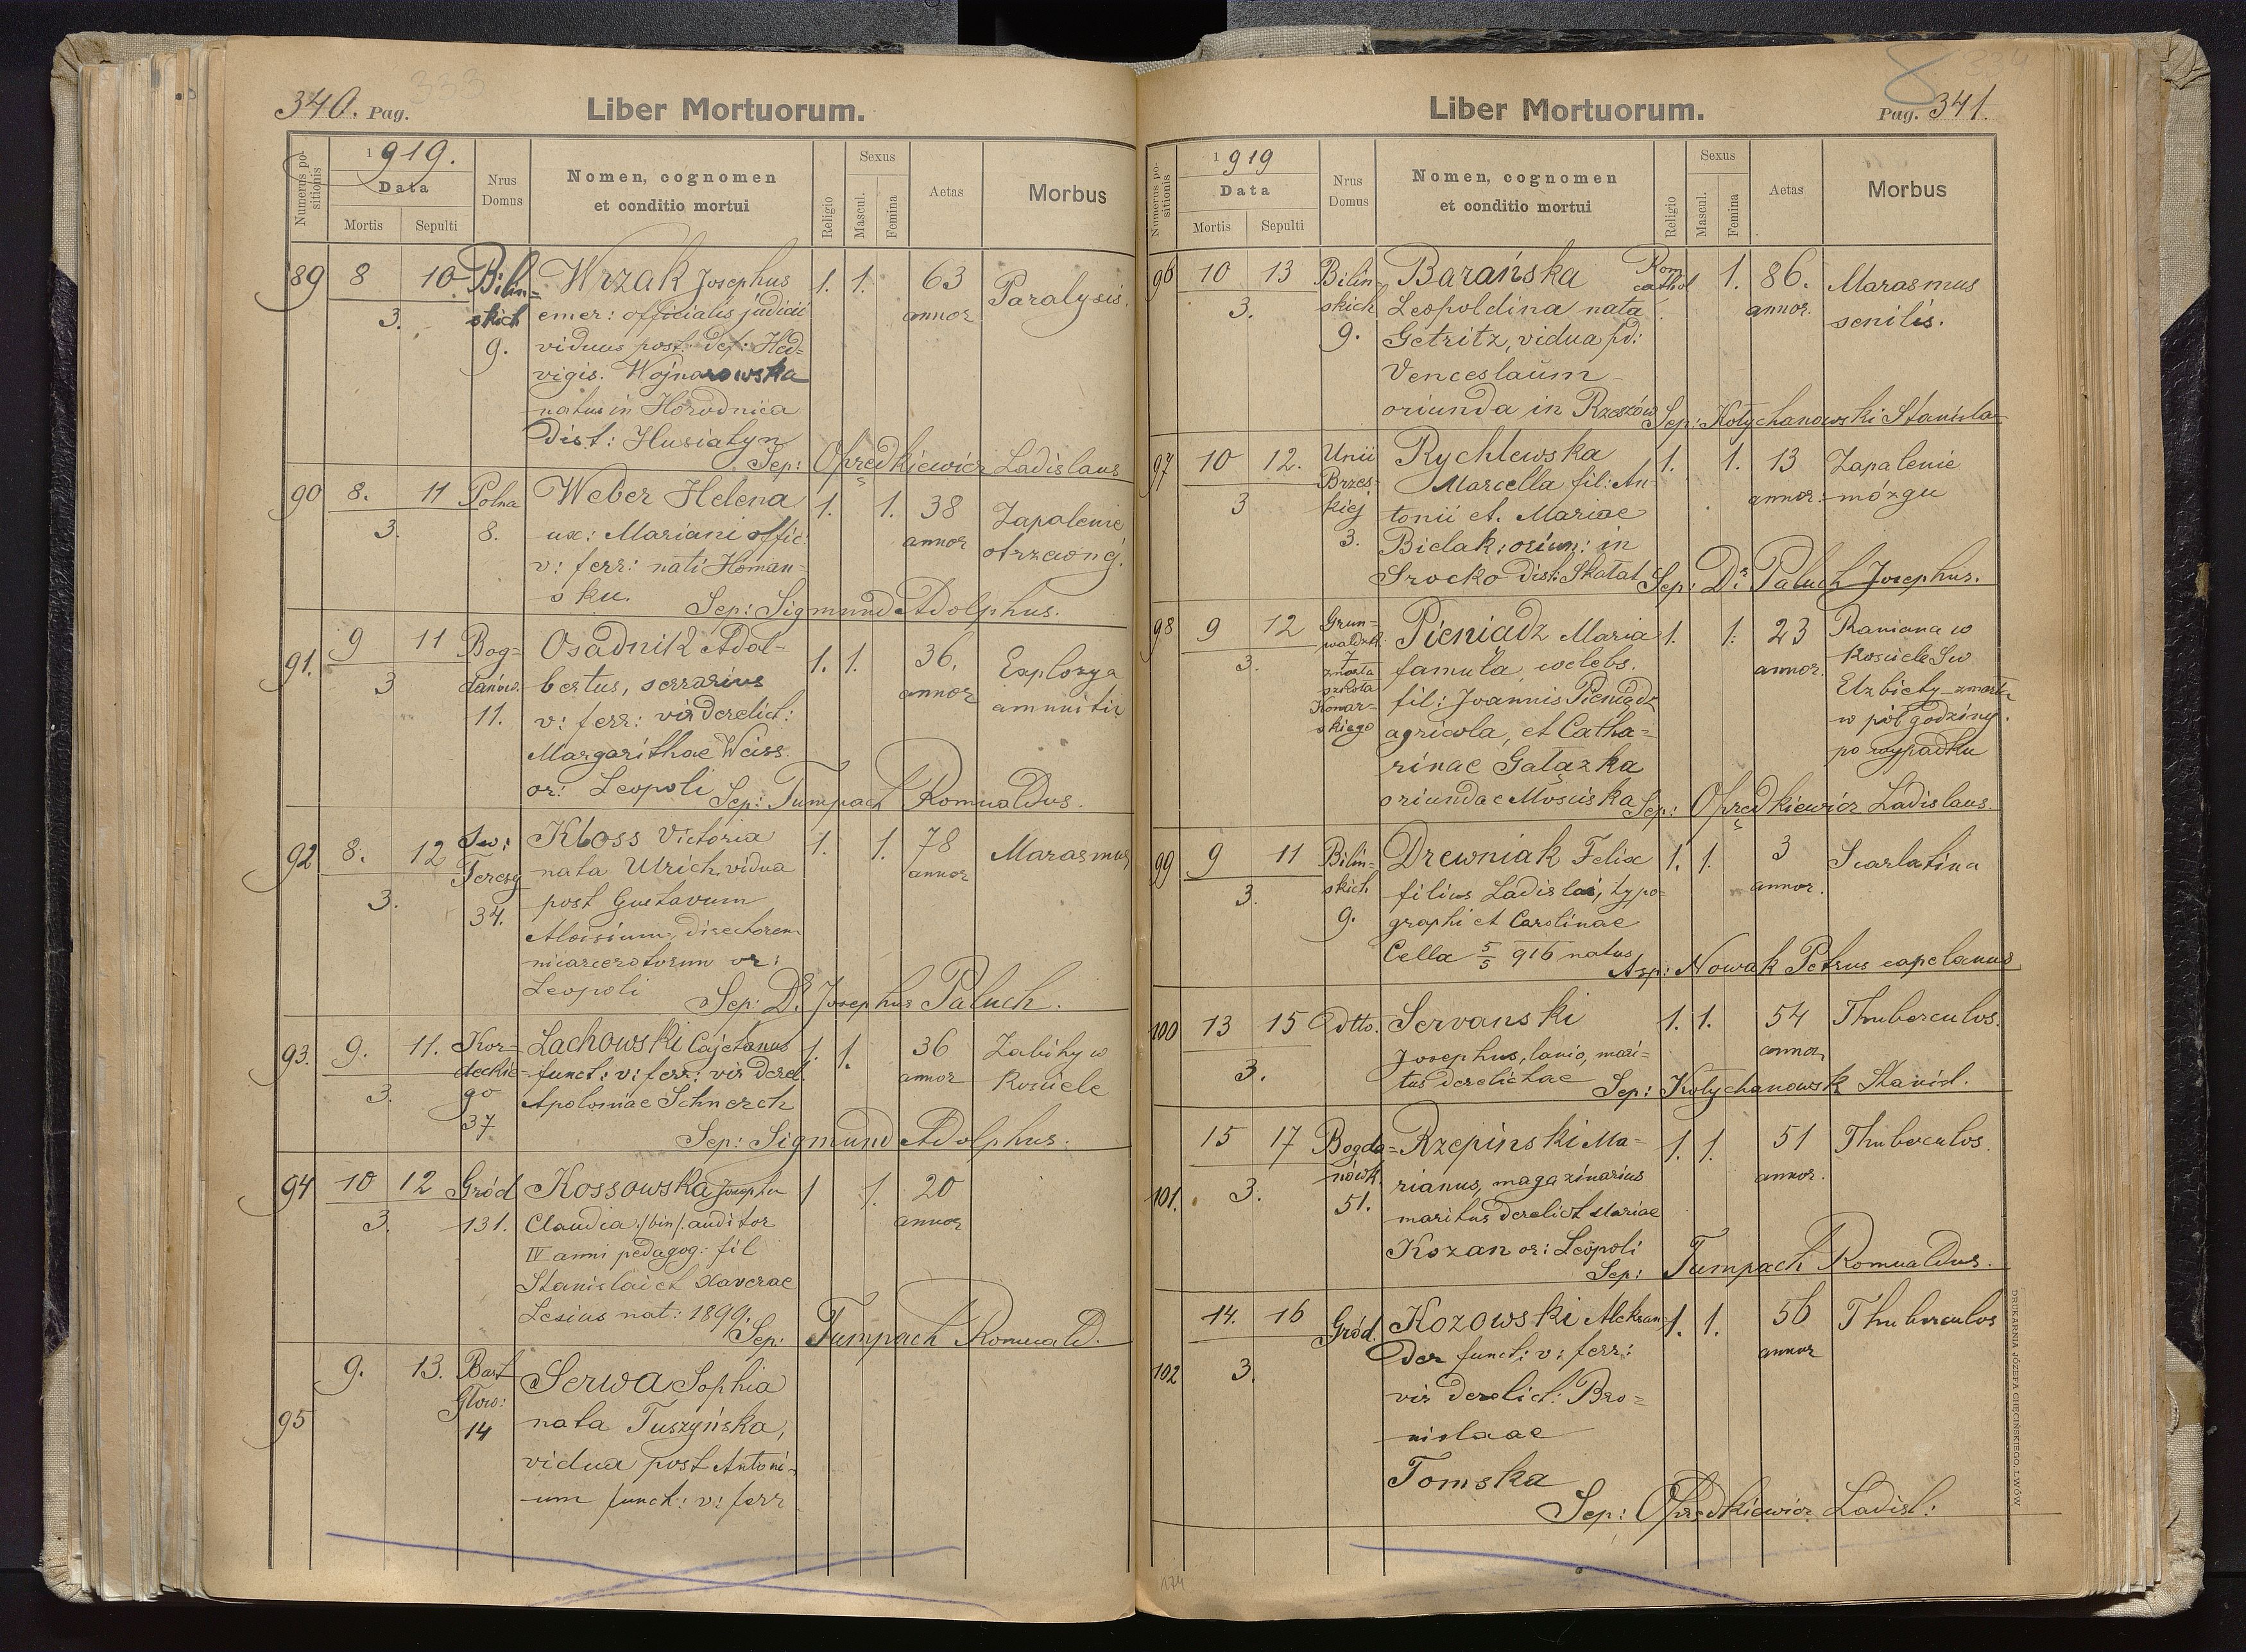 340. Pag.
Liber Mortuorum.
Numerus positionis
1919.
Data
Mortis
Sepulti
Nrus Domus
Nomen, cognomen
et conditio mortui
Religio
Sexus
Mascul.
Femina
Aetas
Morbus
89 8 10 Bilin= Wrzak Josephus 1. 1. 63 Paralysis.
3. skich emer: officialis judicii annor
9. viduus post: def: Hed=
vigis. Wojnarowska
natus in Horodnica
Dist: Husiatyn
Sep: Oprędkiewicz Ladislaus
90 8. 11 Polna Weber Helena 1. 1. 38 Zapalenie
3. 8. ux: Mariani offic: annor otrzewnej.
v: ferr: nati Homan=
sku.
Sep: Sigmund Adolphus.
91. 9 11 Bog= Osadnik Adal= 1. 1. 36. Explozya
3 danów. bertus, serrarius annor amunitii
11. v: ferr: vir derelict:
Margarithae Weiss
or: Leopoli
Sep: Tumpach Romualdus.
92 8. 12 Sw: Kloss Victoria 1. 1. 78 Marasmus
3. Teresy nata Ulrich, vidua annor
34. post Gustavum
Aloisium, directorem
incarceratorum or:
Leopoli
Sep: Dr. Josephus Paluch.
93. 9. 11. Kor= Lachowski Cajetanus 1. 1. 36 Zabity w
3. deckie= funct: v: ferr: vir derel. annor kosciele
go Apoloniae Schnerch
37
Sep: Sigmund Adolphus.
94 10 12 Gród Kossowska Josepha 1 1. 20
3. 131. Claudia /bin/. auditor annor
IV anni pedagog: fil
Stanislai et Xaverae
Lesius nat: 1899.
Sep: Tumpach Romuald.
95 9. 13. Bart Serwa Sophia
Głow: nata Tuszyńska,
14 vidua post Antoni=
um funct: v: ferr
Liber Mortuorum.
Pag. 341.
Numerus positionis
1919
Data
Mortis
Sepulti
Nrus Domus
Nomen, cognomen
et conditio mortui
Religio
Sexus
Mascul.
Femina
Aetas
Morbus
96 10 13 Bilin Barańska Rom cathol 1. 86. Marasmus
3. skich Leopoldina nata annor. senilis.
9. Getritz, vidua pd:
Venceslaum
oriunda in Rzeszów
Sep: Kotychanowski Stanisla
97 10 12. Unii Rychlewska 1. 1. 13 Zapalenie
3 Brzes= Marcella fil: An= annor: mózgu
kiej tonii et. Mariae
3. Bielak: oriun: in
Srocko dist: Skałat
Sep: Dr Paluch Josephus.
98 9 12 Grun= Pieniadz Maria 1. 1. 23 Raniona w
3. waldzk. famula, welebs. annor. kosciele Sw
7 fil: Joannis Pieniądz Elzbiety zmarła
zmarła agricola, et Catha= w pół godziny.
szkoła rinae Gałązka po wypadku
Konar= oriundae Mosciska
skiego
Sep: Oprędkiewicz Ladislaus.
99 9 11 Bilin= Drewniak Felix 1. 1. 3 Scarlatina
3. skich filius Ladislai, typo= annor.
9. graphi et Carolinae
Cella 5/5 916 natus
Asp: Nowak Petrus capelanus
100 13 15 Dtto. Servanski 1. 1. 54 Thuberculos.
3. Josephus, lanio, mari= annor,
tus derelictae
Sep: Kotychanowsk Stanisl.
101. 15 17 Bogda= Rzepinski Ma= 1. 1. 51 Thuberculos.
3. nówk. rianus, magazinarius annor.
51. maritus derelict Mariae
Kozan or: Leopoli
Sep: Tumpach Romualdus.
102 14. 16 Gród. Kozowski Aleksan 1. 1. 56 Thuberculos
3. der funct: v: ferr: annor
vir derelict: Bro=
nislaae
Tomska
Sep: Oprędkiewicz Ladisl:
DRUKARNIA JÓZEFA CHĘCIŃSKIEGO, LWÓW
174